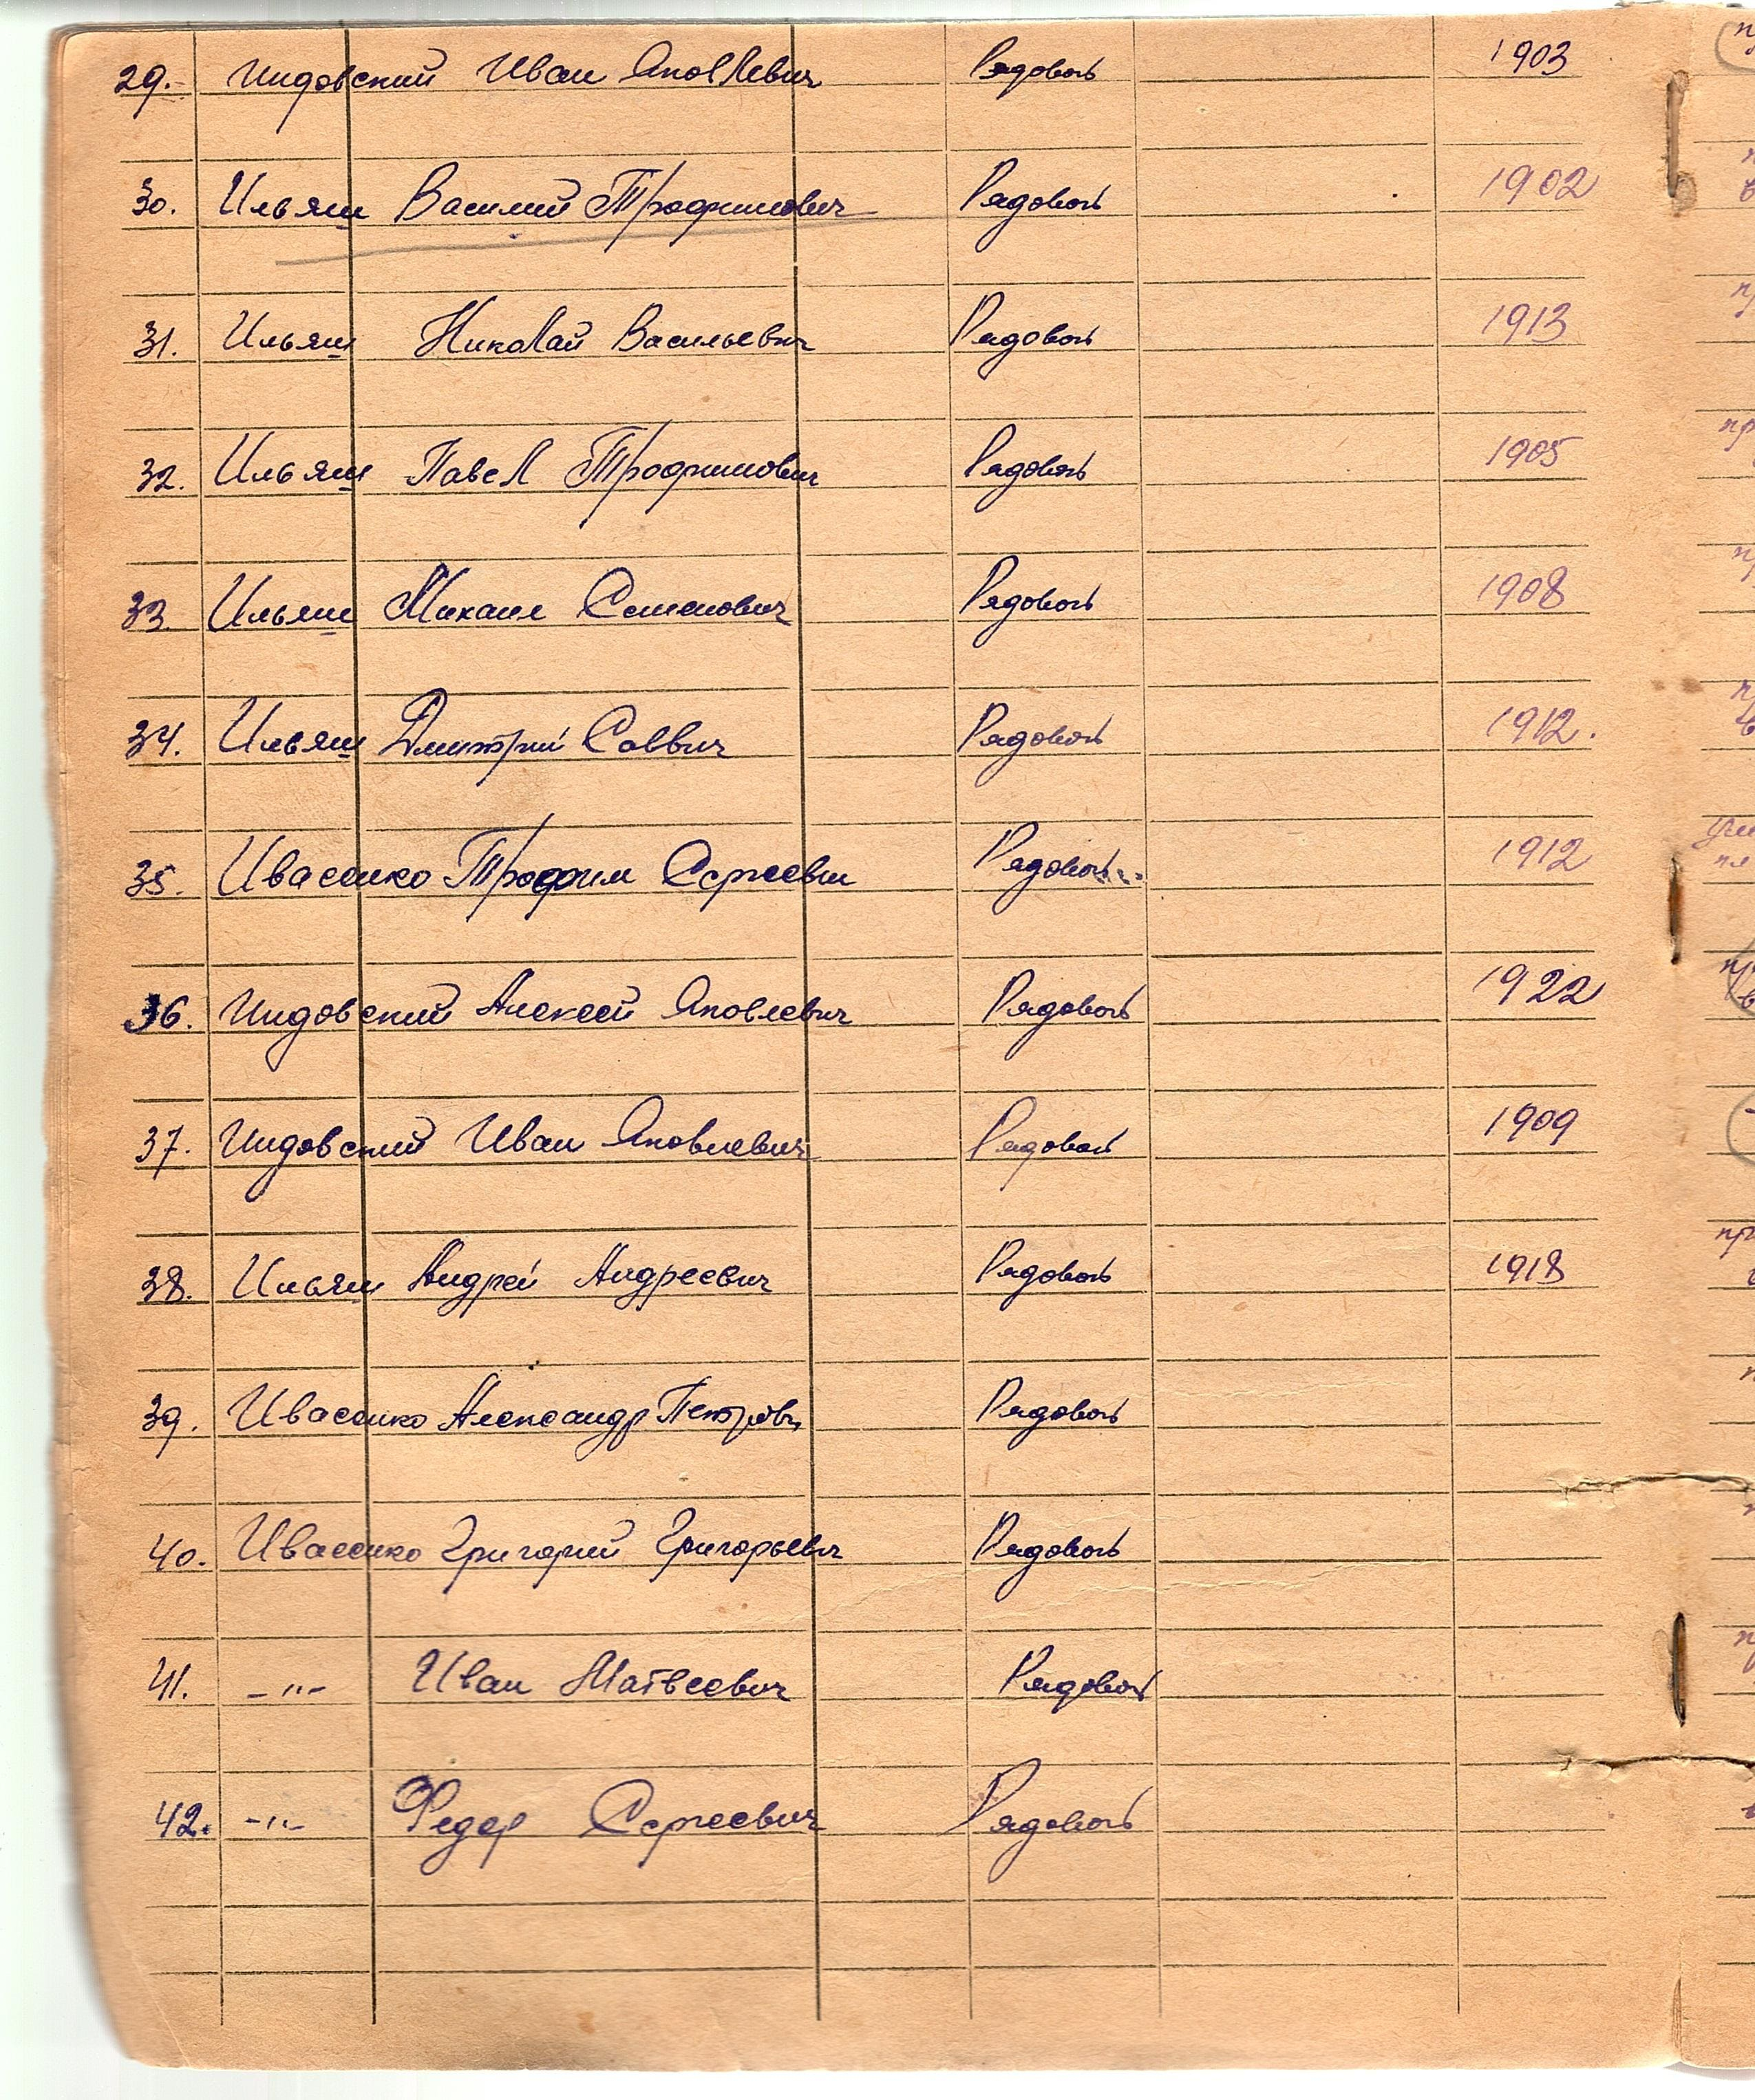 29. Индовский Иван Яковлевич Рядовой 1903
30. Ильяш Василий Трофимович Рядовой 1902
31. Ильяш Николай Васильевич Рядовой 1913
32. Ильяш Павел Трофимович Рядовой 1905
33. Ильяш Михаил Семенович Рядовой 1908
34. Ильяш Дмитрий Саввич Рядовой 1912.
35. Ивасенко Трофим Сергеевич Рядовой 1912
36. Индовский Алексей Яковлевич Рядовой 1922
37. Индовский Иван Яковлевич Рядовой 1909
38. Ильяш Андрей Андреевич Рядовой 1918
39. Ивасенко Александр Петрович Рядовой
40. Ивасенко Григорий Григорьевич Рядовой
41. -"- Иван Матвеевич Рядовой
42. -"- Федор Сергеевич Рядовой